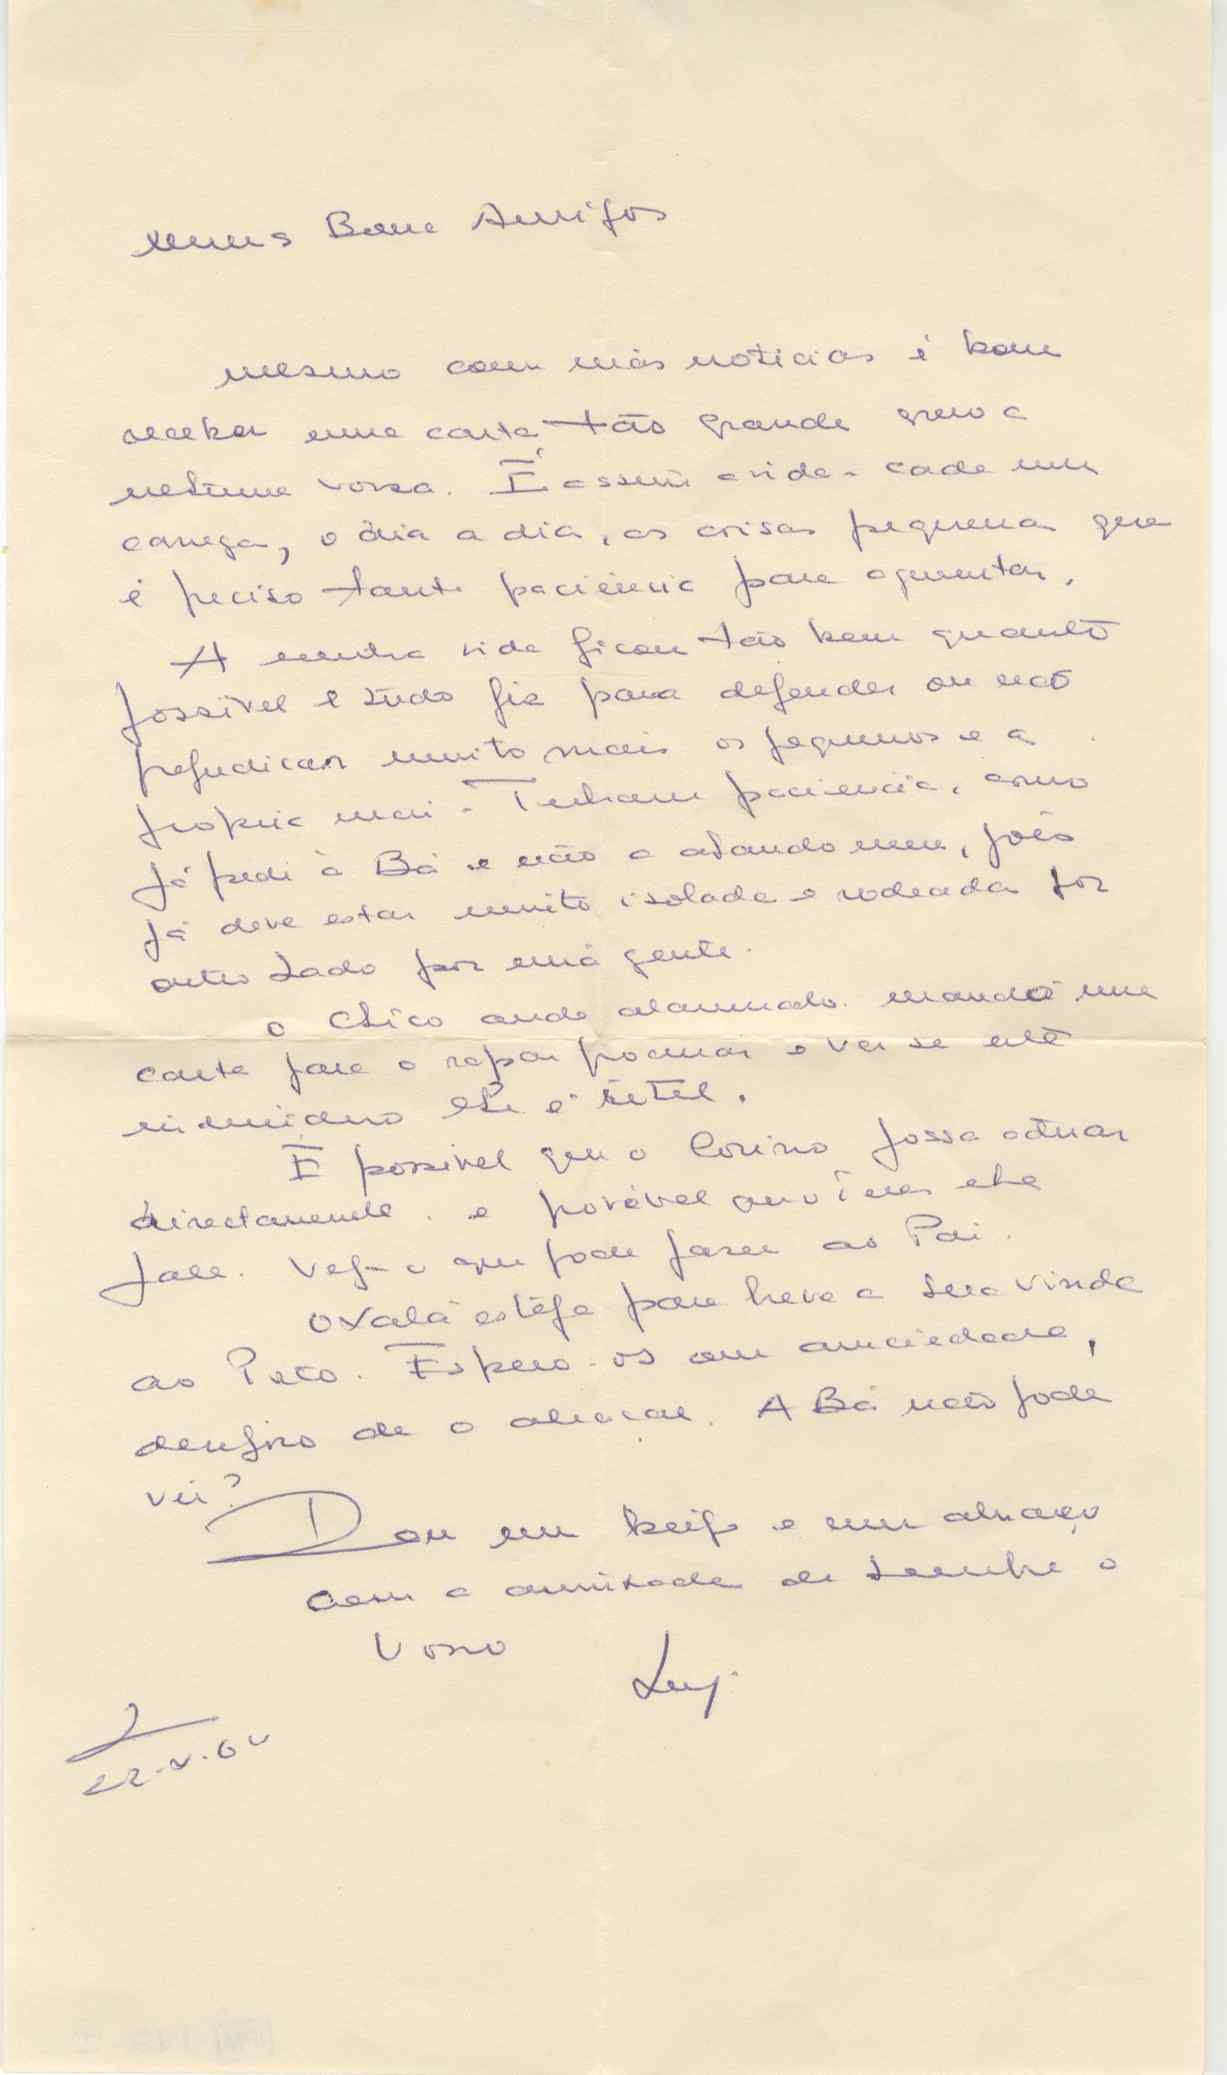 Meus Bons Amigos
mesmo com más noticias é bom
receber uma carta tão grande como a
ultima vossa. É assim a vida - cada um
carrega, o dia a dia, as coisas pequenas que
é preciso tanta paciencia para aguentar.
A minha vida ficou tão bem quanto
possivel e tudo fiz para defender ou não
prejudicar muito mais os pequenos e a
propria mãi - Tenham paciencia, como
já pedi à Bá e não a abandonem, pois
já deve estar muito isolada e rodeada por
outro lado por má gente.
O Chico anda alarmado. mandei uma
carta para o rapaz procurar e ver se este
lhe é útil.
É possivel que o possa actuar
directamente. e
fale. Veja o que pode fazer ao Pai.
Oxalá esteja para breve a sua vinda
ao Porto. Espero-os com anciedade,
desejoso de o abraçar. A Bá não pode
vir?
Dou um beijo e um abraço
com a amizade de sempre o
Vosso
22.V.60